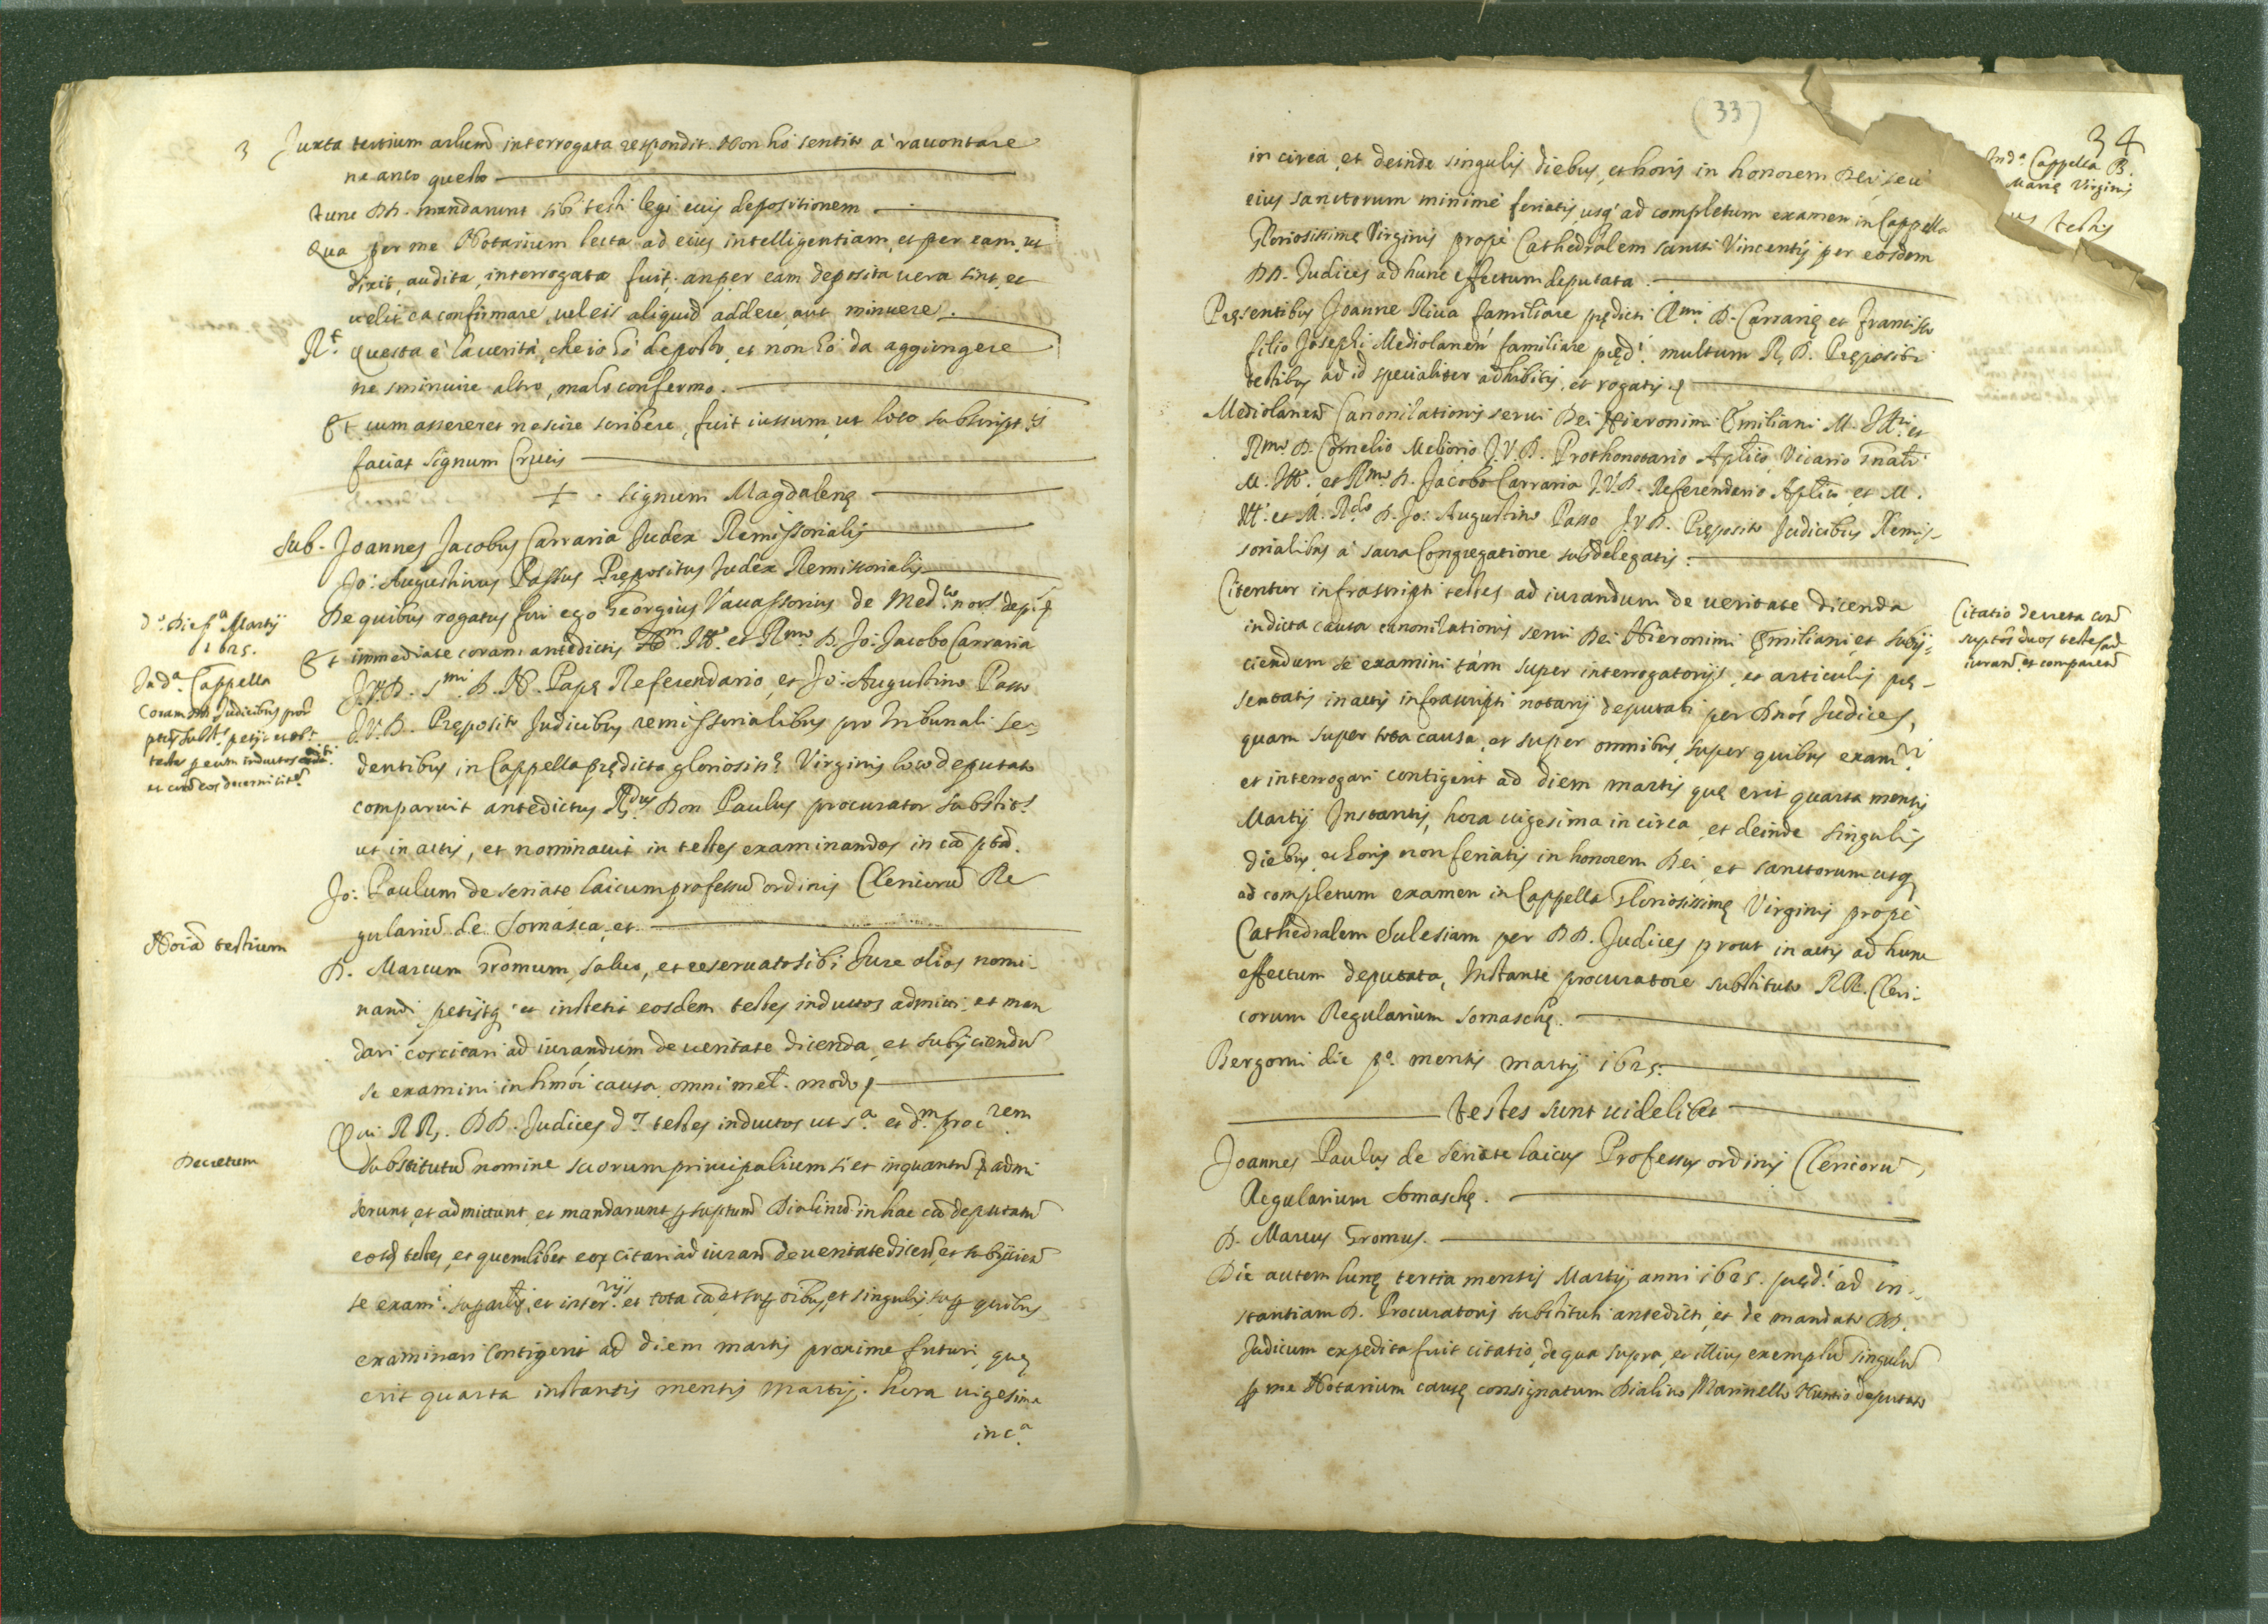 3 Juxta tertium artlum̃ interrogata respondit. Non hò sentito à racontare
ne anco questo
tunc DD. mandarunt sibi testi legi eius depositionem
Qua per me Notarium lecta ad eius intelligentiam, et per eam, ut
dixit, audita, interrogata fuit. an per eam deposita uera sint, et
uelit ea confirmare, uel eis aliquid addere, aut minuere.
R.t questa è la uerità, che io hò deposto, et non hò da aggiungere
ne sminuire altro, ma lo confermo.
Et cum assereret nescire scribere, fuit iussum, ut loco subscript.s
faciat signum Crucis
+ . signum Magdalenę
sub- Joannes Jacobus Carraria Judex Remissorialis
Jo: Augustinus Passus Prępositus Judex Remissorialis
De quibus rogatus fui ego Georgius Vauassorius de Med.co not.s dep.s
d.o Die p.a Martij
1625.
Et immediate coram antedictis Ill. et Rmo D. Jo: Jacobo Carraria
J.V.D. S.mi D. N. Papę Referendario, et Jo: Augustino Passo
J.V.D. Pręposito Judicibus remissorialibus pro tribunali se-
dentibus in Cappella prędicta gloriosiss.ę Virginis loco deputato
In d.a Cappella
Coram DD. Judicibus
testes per eum inductos
et eos decerni
comparuit antedictus R.dus Don Paulus procurator substit.s
ut in actis, et nominauit in testes examinandos in cã
Jo: Paulum de seriate laicum professũ ordinis Clericorũ Re
gulariũ de Somasca, et
Noĩa testium
D. Marcum Gromum, saluo, et reseruato sibi Jure alios nomi-
nandi petijtq; et institit eosdem testes inductos admitti, et man
dari eos citari ad iurandum de ueritate dicenda, et subijciendũ
se examini in hmõi causa omni mel. modo
Qui RR. DD. Judices d.os testes inductos ut s.a et d.m proc.rem
Decretum
substitutũ nomine suorum principalium si et inquantũ admi
serunt, et admittunt, et mandarunt Dialinũ in hac cã deputatũ
eosd̃ testes, et quemlibet eor̃ citari ad iurand̃ de ueritate dicend̃, et subijciend̃
se exami. sup artlis, et inter.rijs et tota cã et sup oĩbus, et singulis, sup quibus
examinari contigerit ad diem martis proxime futuri, quę
erit quarta instantis mensis Martij. hora uigesima
in c.a
(33)
34
in circa, et deinde singulis diebus, et horis in honorem Dei, seu
eius sanctorum minimè feriatis usq; ad completum examen in Cappella
Gloriosissimę Virginis propè Cathedralem sancti Vincentij per eosdem
DD. Judices ad hunc effectum deputata.
In d.a Cappella B.
Marię Virginis
testis
Pręsentibus Joanne Riua familiare prędicti Rmi D. Carrarię et Francisco
filio Josephi Mediolaneñ familiare pręd.i multum R. D. Prępositi
testibus ad id specialiter adhibitis, et rogatis.
Mediolaneñ Canonizationis serui Dei Hieronimi Emiliani M. Illri et
Rmo D. Cornelio Meliorio J.V.D. Prothonotario Aplico, Vicario gnali
M. Ill. et Rmo D. Jacobo Carraria J.V.D. Referendario Aplico, et M.
Ill. et M. R.do D. Jo: Augustino Passo J.V.D. Pręposito Judicibus Remis-
sorialibus à sacra Congregatione subdelegatis.
Citentur infrascripti testes ad iurandum de ueritate dicenda
in dicta causa canonizationis serui Dei Hieronimi Emiliani, et subij-
ciendum se examini tàm super interrogatorijs, et articulis pre-
sentatis in actis infrascripti notarij deputati per Dnos Judices,
quam super tota causa, et super omnibus, super quibus exam.ri
et interrogari contigerit ad diem martis quę erit quarta mensis
Martij Instantis, hora uigesima in circa, et deinde singulis
diebus, et horis non feriatis in honorem Dei, et sanctorum usq;
ad completum examen in Cappella Gloriosissimę Virginis propè
Cathedralem Eclesiam per DD. Judices prout in actis ad hunc
effectum deputata, Instante procuratore substituto RR. Cleri-
corum Regularium Somaschę.
Citatio decreta con.
duos testes ad
iurand̃ et comparend̃
Bergomi die p.o mensis martij 1625.
testes sunt uidelicet
Joannes Paulus de Seriate laicus Professus ordinis Clericorũ
Regularium Somaschę.
D. Marcus Gromus.
Die autem lunę tertia mensis Martij anni 1625. pręd.i ad in-
stantiam D. Procuratoris substituti antedicti, et de mandato DD.
Judicum expedita fuit citatio, de qua supra, et illius exemplũ singulũ
p me Notarium causę consignatum Dialino Marinello Nuntio deputato